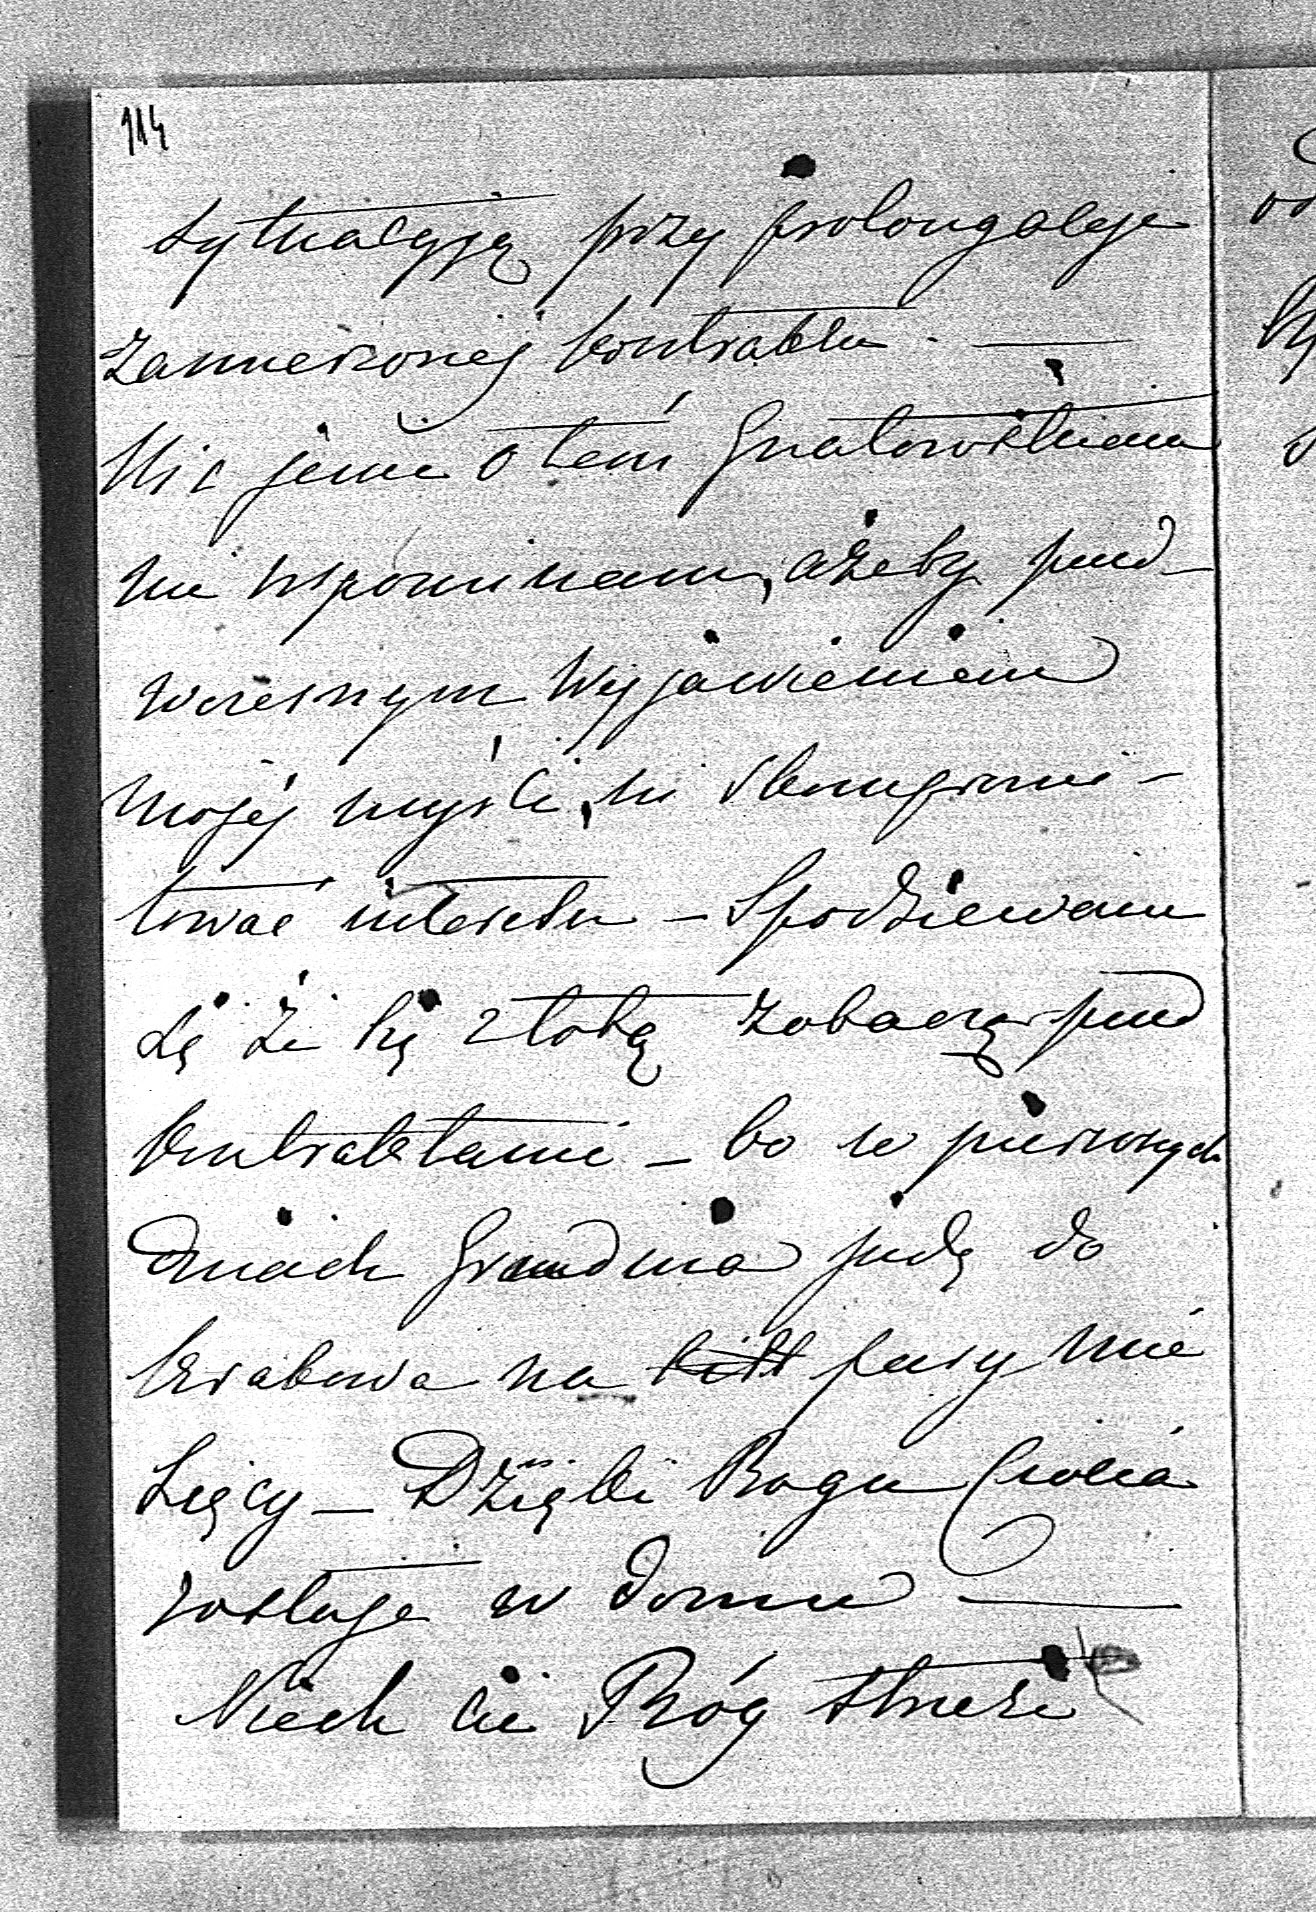 114
sytuacyją przy prolongacye
zamierzonej kontraktu. —
Nic jemu o tem Gnatowskiemu
nie wspominam, ażeby przed-
wczesnym wyjawieniem
mojéj myśli, nie skompromi-
tować interesu – Spodziewam
się że się z tobą zobaczę przed
kontraktami – bo w pierwszych
dniach Grudnia jadę do
Krakowa na parę mie
sięcy – Dzięki Bogu Ciocia
zostaje w domu —
Niech cię Bóg strzeże